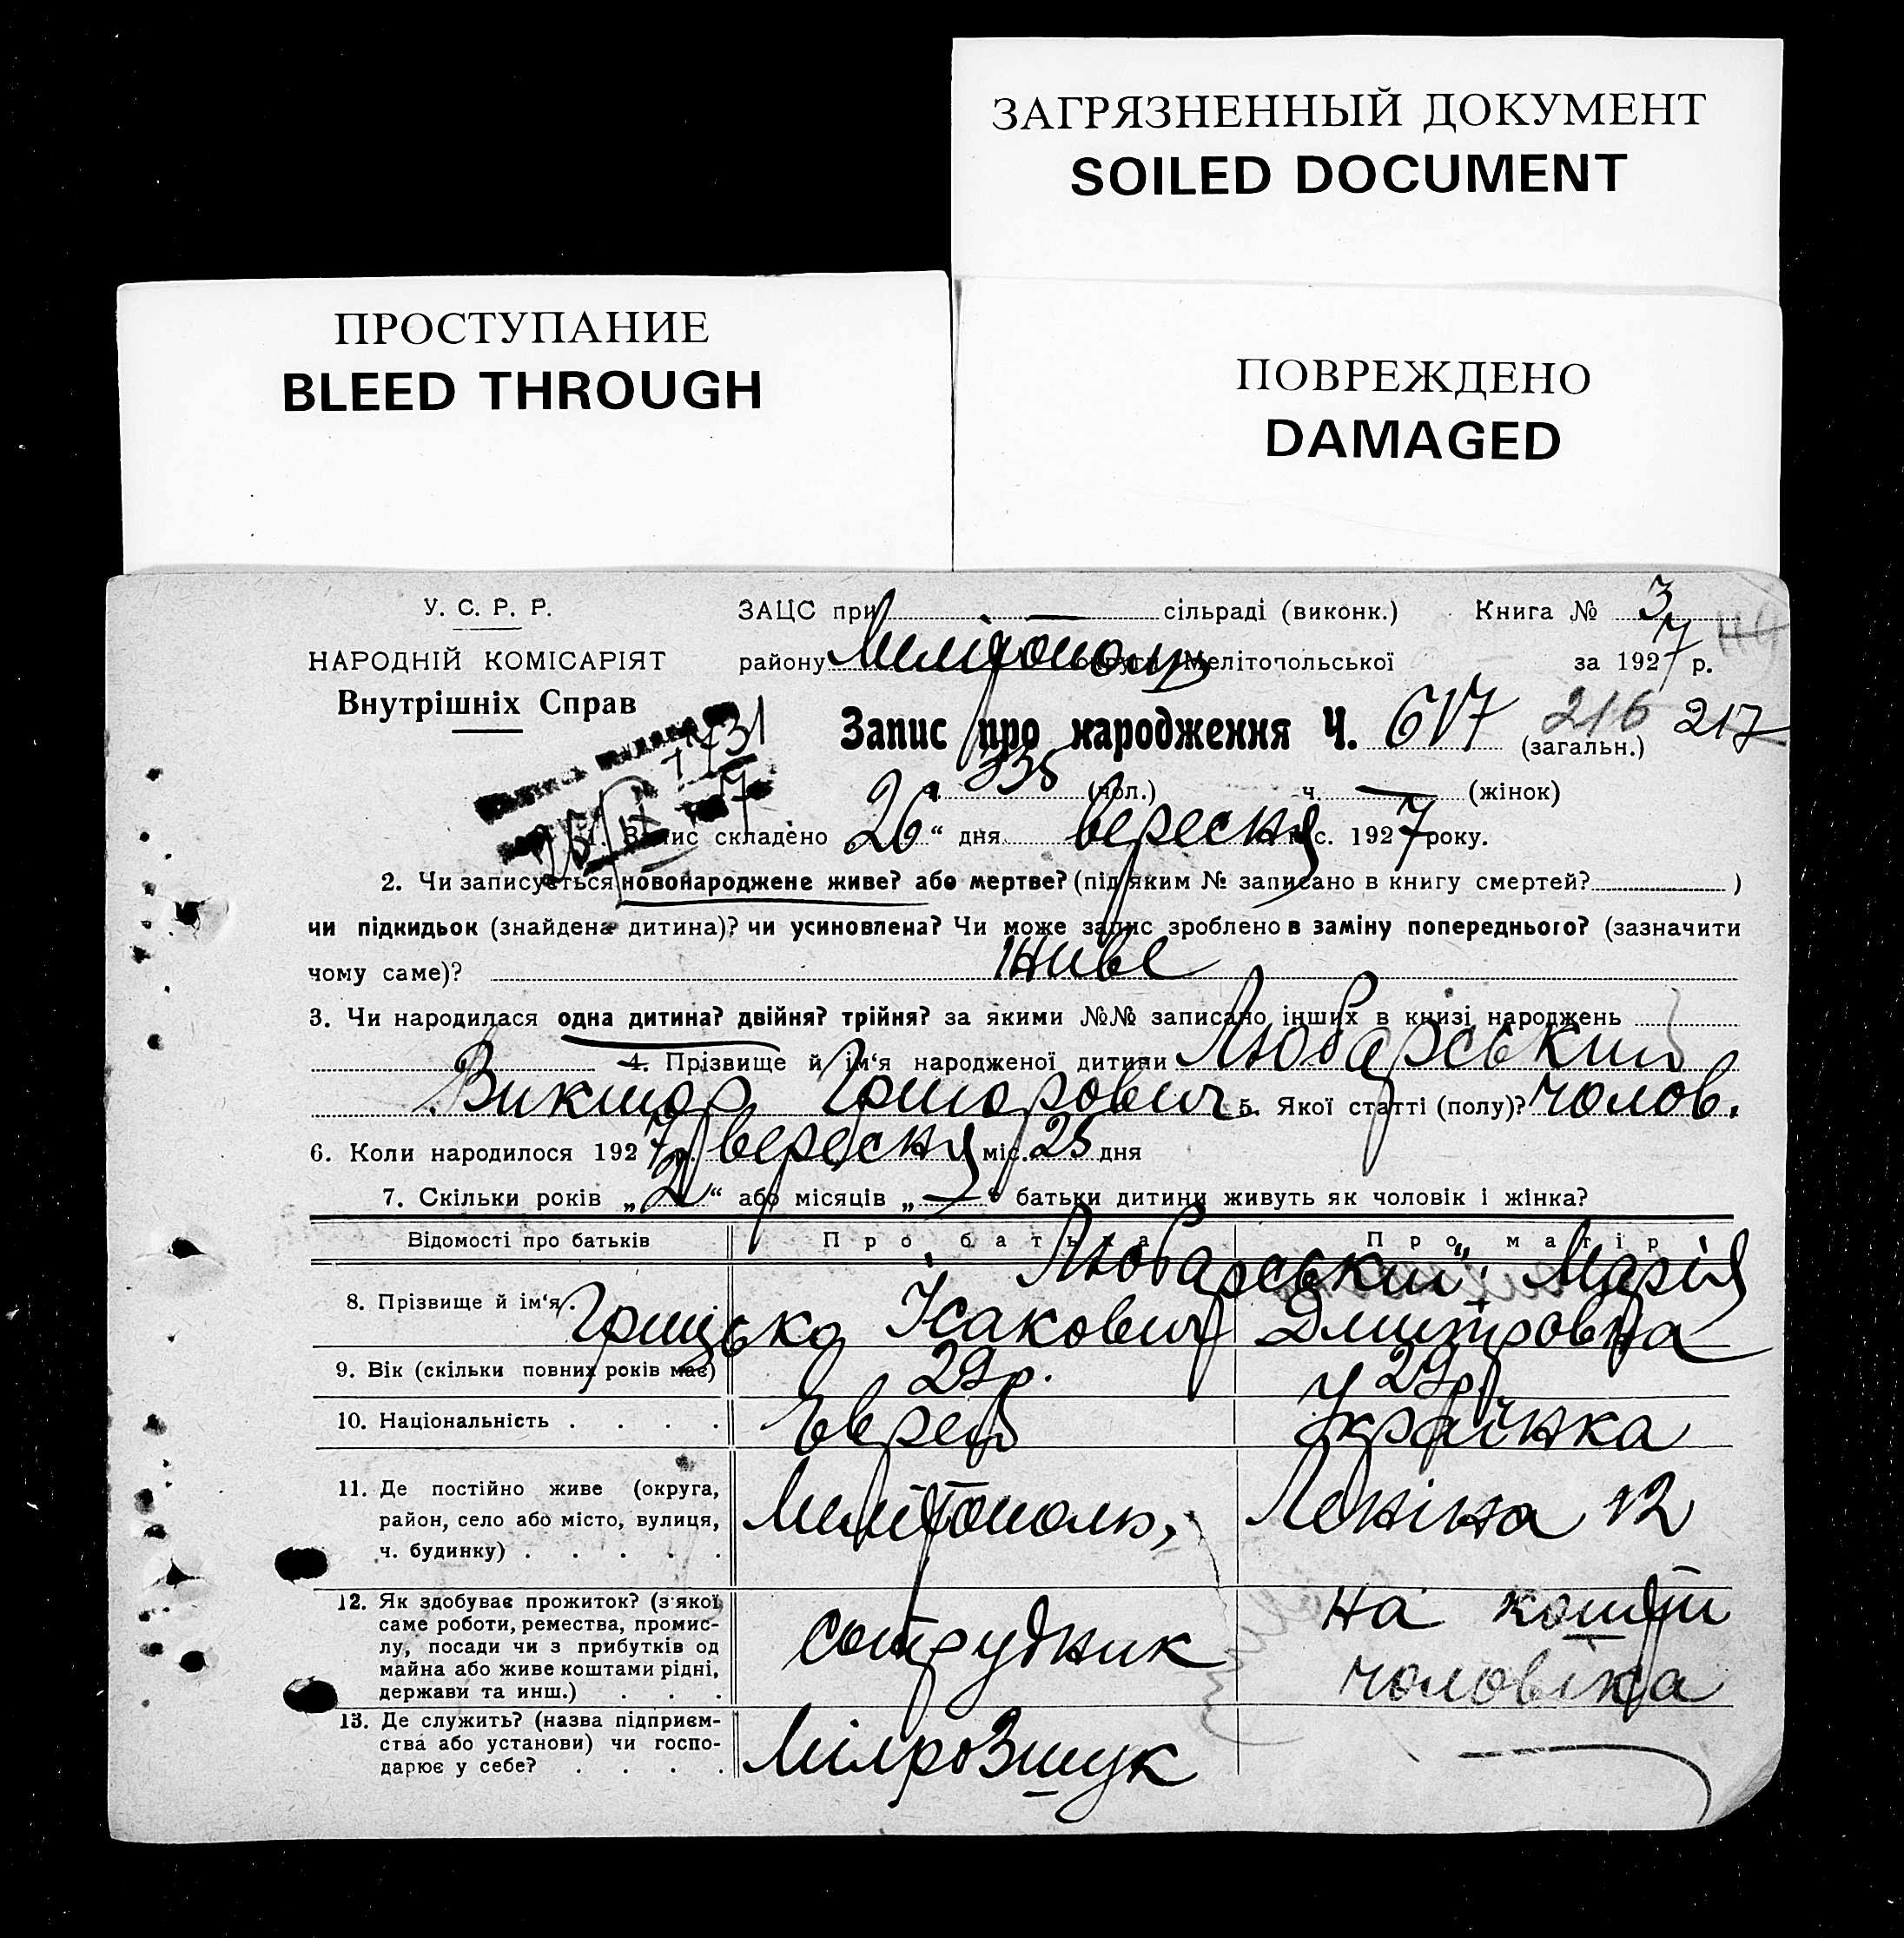 ЗАГРЯЗНЕННЫЙ ДОКУМЕНТ
SOILED DOCUMENT
ПРОСТУПАНИЕ
BLEED THROUGH
ПОВРЕЖДЕНО
DAMAGED
У. С. Р. Р.
НАРОДНІЙ КОМІСАРІЯТ
Внутрішніх Справ
ЗАЦС при — сільраді (виконк.) Книга № 3
району Мелітополь округи Мелітопольської за 1927 р.
Запис про народження Ч. 617 (загальн.) 216 217
ч. 335 (чол.) ч. — (жінок)
1. Запис складено „26“ дня вересня міс. 1927 року.
2. Чи записується новонароджене живе? або мертве? (під яким № записано в книгу смертей? )
чи підкидьок (знайдена дитина)? чи усиновлена? Чи може запис зроблено в заміну попереднього? (зазначити
чому саме)? живе
3. Чи народилася одна дитина? двійня? трійня? за якими №№ записано інших в книзі народжень
4. Прізвище й ім‘я народженої дитини Любарський
Виктор Григорович 5. Якої статті (полу)? чолов.
6. Коли народилося 1927 р. вересня міс. 25 дня
7. Скільки років „2“ або місяців „—“ батьки дитини живуть як чоловік і жінка?
Відомості про батьків Про батька Про матір
8. Прізвище й ім‘я . Любарський Марія
Грицько Ісакович Дмитровна
9. Вік (скільки повних років має) 29 р. 29 р.
10. Національність . . . . Еврей Українка
11. Де постійно живе (округа,
район, село або місто, вулиця,
ч. будинку) . . . . .
Мелітополь, Леніна 12
12. Як здобуває прожиток? (з якої
саме роботи, ремества, промис-
лу, посади чи з прибутків од
майна або живе коштами рідні,
держави та инш.) . . .
сотрудник на кошти
чоловіка
13. Де служить? (назва підприєм-
ства або установи) чи госпо-
дарює у себе? . . . .